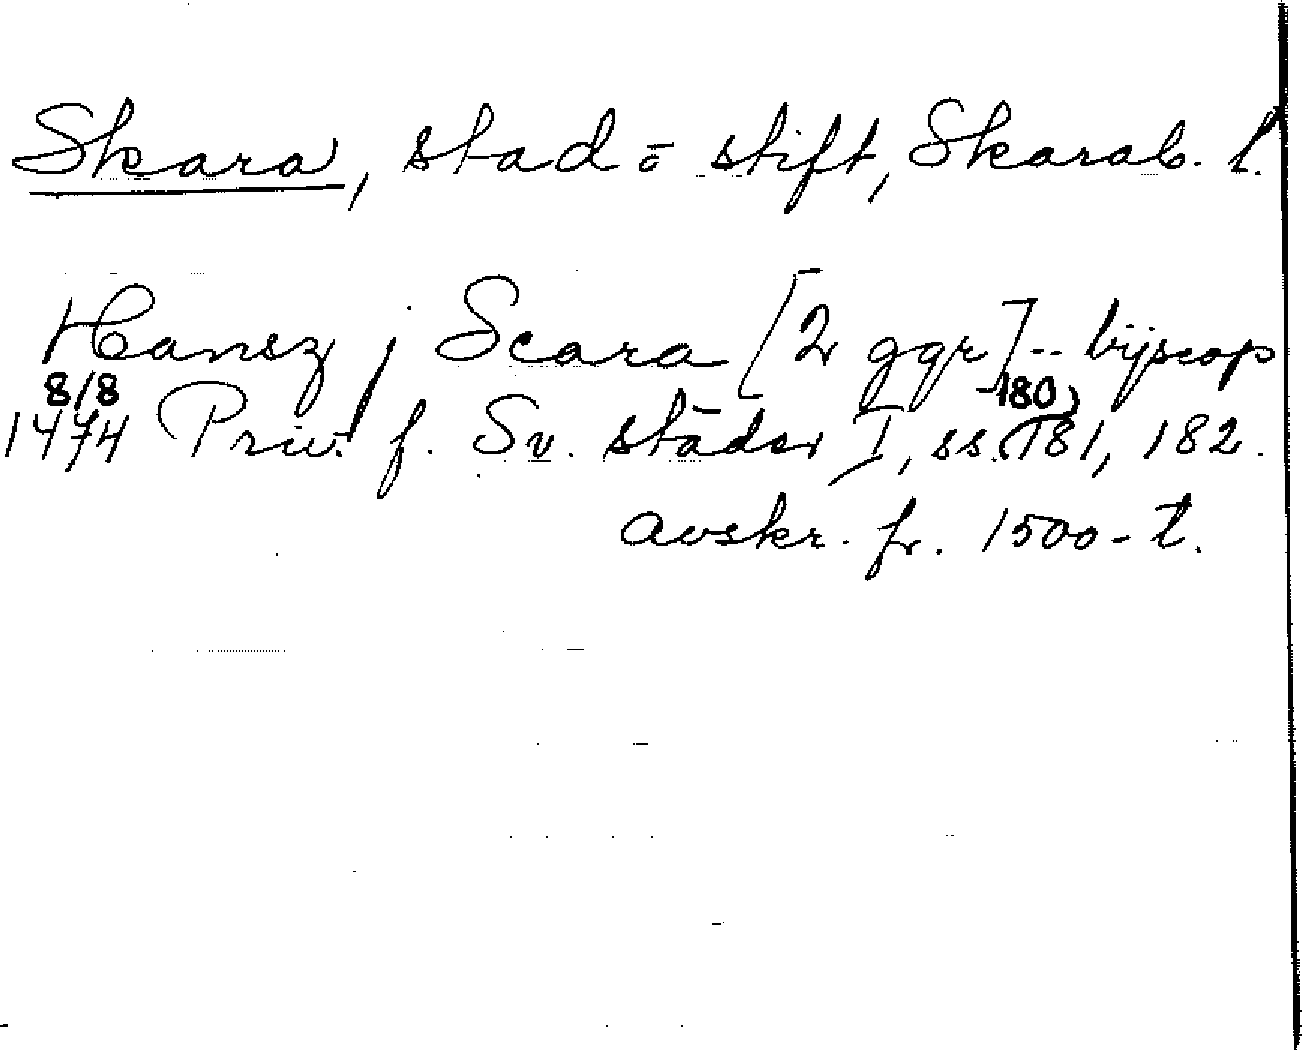 Skara, stad o stift, Skarab. l.
Hansz j Scara [2 ggr] -- bijscop
8/8 180,
1474 Priv. f. Sv. städer I, ss. 181, 182.
avskr. fr. 1500-t.